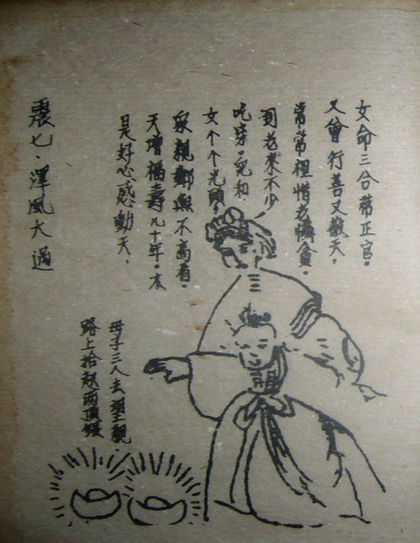 女命三合帶正官。
又曾行善又敬天。
常常惜老憐貧。
到老來不少
吃穿。兒和
女个个光頭。
眾親鄰無不高看。
天增福壽九十年。本
是好心感動天。
震七·澤風大過
母子三人去望親
路上拾兩銀